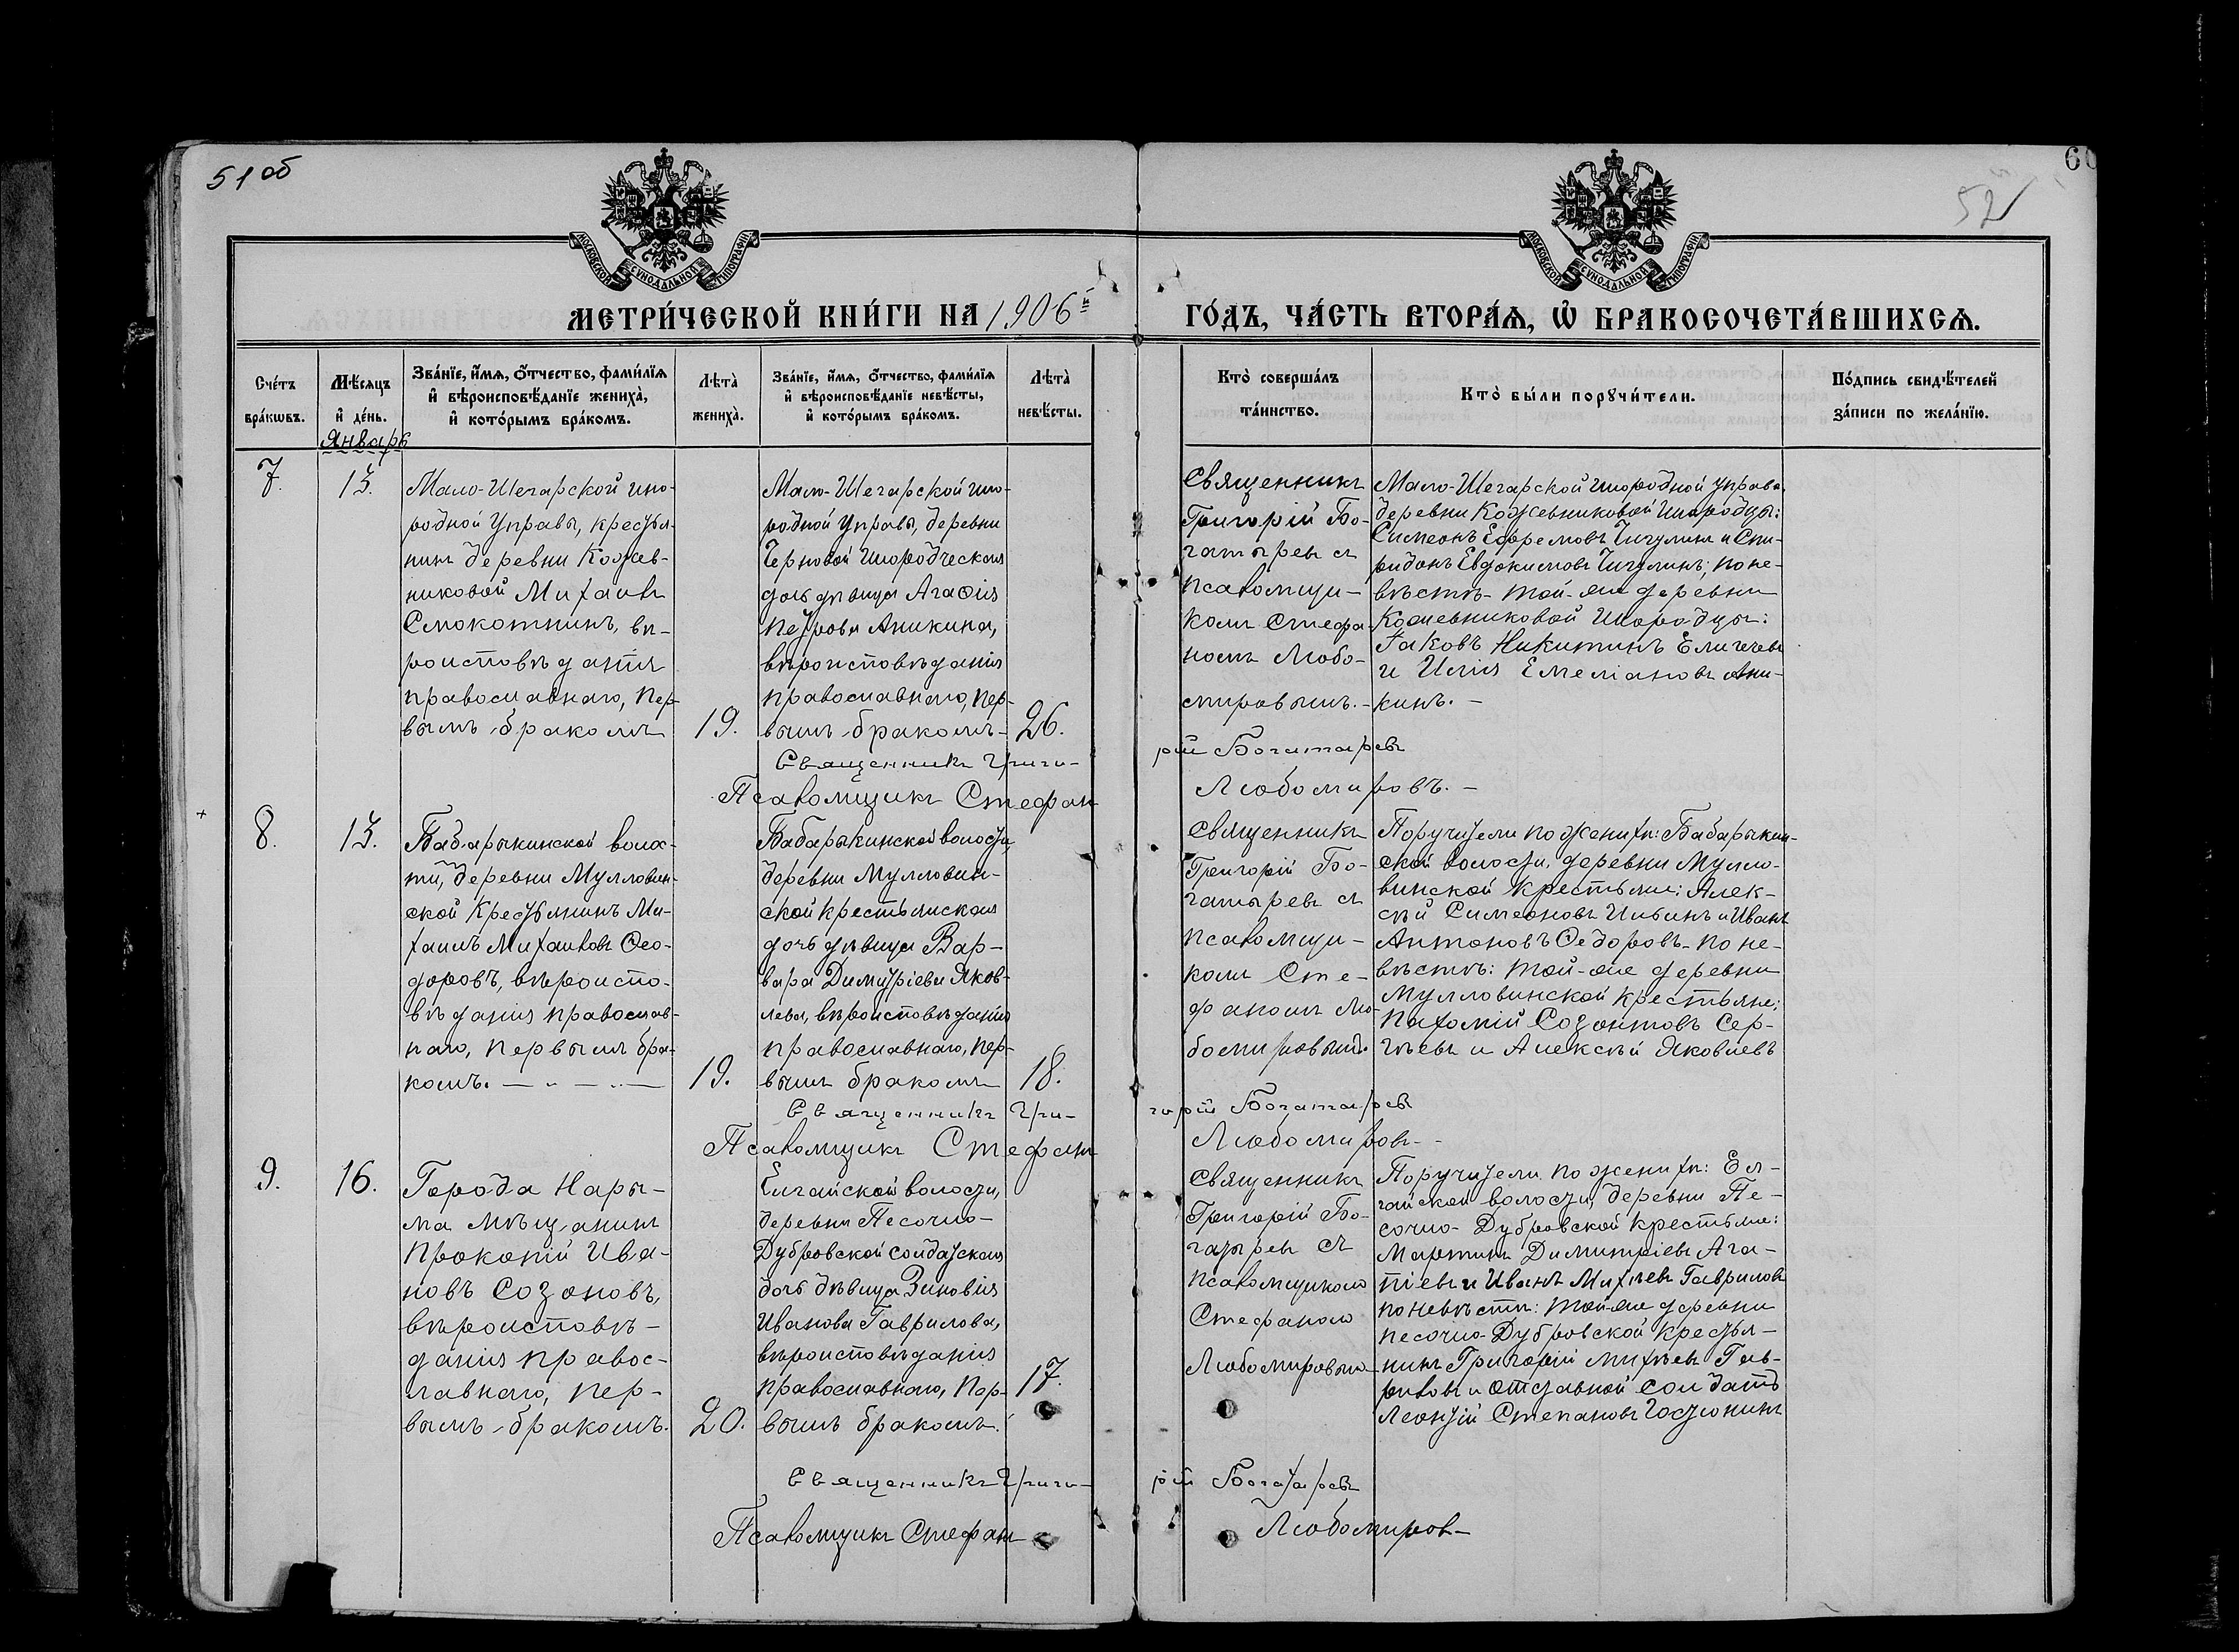 51 об
60
52
МОСКОВСКОЙ СѴНОДАЛЬНОЙ ТИПОГРАФІИ.
МОСКОВСКОЙ СѴНОДАЛЬНОЙ ТИПОГРАФІИ.
МЕТРИ́ЧЕСКОЙ КНИ́ГИ НА 1906й ГО́ДЪ, ЧА́СТЬ ВТОРА́Ѧ, Ѡ҆ БРАКОСОЧЕТА́ВШИХСѦ.
Сче́тъ
бра́кѡвъ.
Мѣ́сяцъ
и҆ де́нь.
Январь
Зва́нїе, и҆́мя, ѻ҆́тчество, фами́лїя
и҆ вѣроисповѣ́данїе жениха̀,
и҆ кото́рымъ бра́комъ.
Лѣта̀
жениха̀.
Зва́нїе, и҆́мя, ѻ҆́тчество, фами́лїя
и҆ вѣроисповѣ́данїе невѣ́сты,
и҆ кото́рымъ бра́комъ.
Лѣта̀
невѣ́сты.
Кто̀ соверша́лъ
та́инство.
Кто̀ бы́ли порꙋчи́тели.
По́дпись свидѣ́телей
за́писи по жела́нїю.
7.
13.
Мало-Шегарской ино-
родной Управы, крестья-
нинъ деревни Кожев-
никовой Михаилъ
Смокотнинъ, вѣ-
роисповѣданія
православнаго, пер-
вымъ бракомъ
19.
Мало-Шегарской ино-
родной Управы, деревни
Черновой Инородческая
дочь дѣвица Агафія
Петрова Аникина,
вѣроисповѣданія
православнаго, пер-
вымъ бракомъ-
26.
Священникъ
Григорій Бо-
гатыревъ съ
псаломщи-
комъ Стефа
номъ Любо-
мировымъ.-
Мало-Шегарской инородной управы
деревни Кожевниковой инородцы:
Симеонъ Ефремовъ Чигулинъ и Спи-
ридонъ Евдокимовъ Чигулинъ; по не-
вѣстѣ- той-же деревни
Кожевниковой инородцы:
Іаковъ Никитинъ Елигечевъ
и Илія Емеліановъ Ани-
кинъ.-
Священникъ Григо-рій Богатыревъ
Псаломщикъ Стефанъ Любомировъ.-
+
8.
13.
Бабарыкинской волос-
ти, деревни Мулловин-
ской Крестьянинъ Ми-
хаилъ Михаиловъ Ѳео-
доровъ, вѣроиспо-
вѣданія православ-
наго, первымъ бра-
комъ.
19.
Бабарыкинской волости,
деревни Мулловин-
ской крестьянская
дочь дѣвица Вар-
вара Димитріева Яков-
лева, вѣроисповѣданія
православнаго, пер-
вымъ бракомъ
18.
Священникъ
Григорій Бо-
гатыревъ съ
псаломщи-
комъ Сте-
фаномъ Лю-
бомировымъ.
Поручители по женихѣ: Бабарыкин-
ской волости, деревни Мулло-
винской крестьяне: Алек-
сѣй Симеоновъ Ильинъ и Иванъ
Антоновъ Ѳедоровъ- по не-
вѣстѣ: той-же деревни
Мулловинской крестьяне:
Пахомій Созонтовъ Сер-
гѣевъ и Алексѣй Яковлевъ
Священникъ Гри-горій Богатыревъ
Псаломщикъ Стефанъ Любомировъ-
9.
16.
Города Нары-
ма мѣщанинъ
Прокопій Ива-
новъ Созоновъ,
вѣроисповѣ-
данія правос-
лавнаго, пер-
вымъ бракомъ.
20.
Елгайской волости,
деревни Песочно-
Дубровской солдатская
дочь дѣвица Зиновія
Иванова Гаврилова,
вѣроисповѣданія
православнаго, пер-
вымъ бракомъ.
17.
Священникъ
Григорій Бо-
гатыревъ съ
псаломщикомъ
Стефаномъ
Любомировымъ
Поручители по женихѣ: Ел-
гайской волости, деревни Пе-
сочно-Дубровской крестьяне:
Мартинъ Димитріевъ Ага-
піевъ и Иванъ Михѣевъ Гавриловъ
по невѣстѣ: той-же деревни
Песочно-Дубровской крестья-
нинъ Григорій Михѣевъ Гав-
риловъ и отставной солдатъ
Леонтій Степановъ Костюнинъ
Священникъ Григо-рій Богатыревъ
Псаломщикъ Стефанъ Любомировъ-